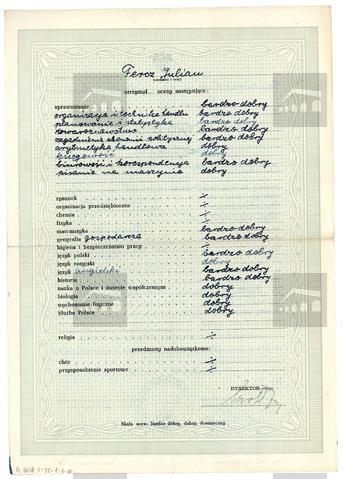 Fercz Julian
(nazwisko i imię)
otrzymał oceny następujące:
sprawowanie bardzo dobry
organizacja i technika handlu bardzo dobry
planowanie i statystyka bardzo dobry
towaroznawstwo bardzo dobry
zagadnienia ekonomii politycznej bardzo dobry
arytmetyka handlowa dobry
księgowość dobry
biurowość i korespondencja bardzo dobry
pisanie na maszynie dobry
rysunek
organizacja przedsiębiorstw
chemia
fizyka
matematyka bardzo dobry
geografia gospodarcza bardzo dobry
higiena i bezpieczeństwo pracy
język polski bardzo dobry
język rosyjski dobry
język angielski bardzo dobry
historia bardzo dobry
nauka o Polsce i świecie współczesnym dobry
biologia dobry
wychowanie fizyczne dobry
Służba Polsce dobry
religia
przedmioty nadobowiązkowe:
chór
przysposobienie sportowe
DYREKTOR
Skala ocen: bardzo dobry, dobry, dostateczny